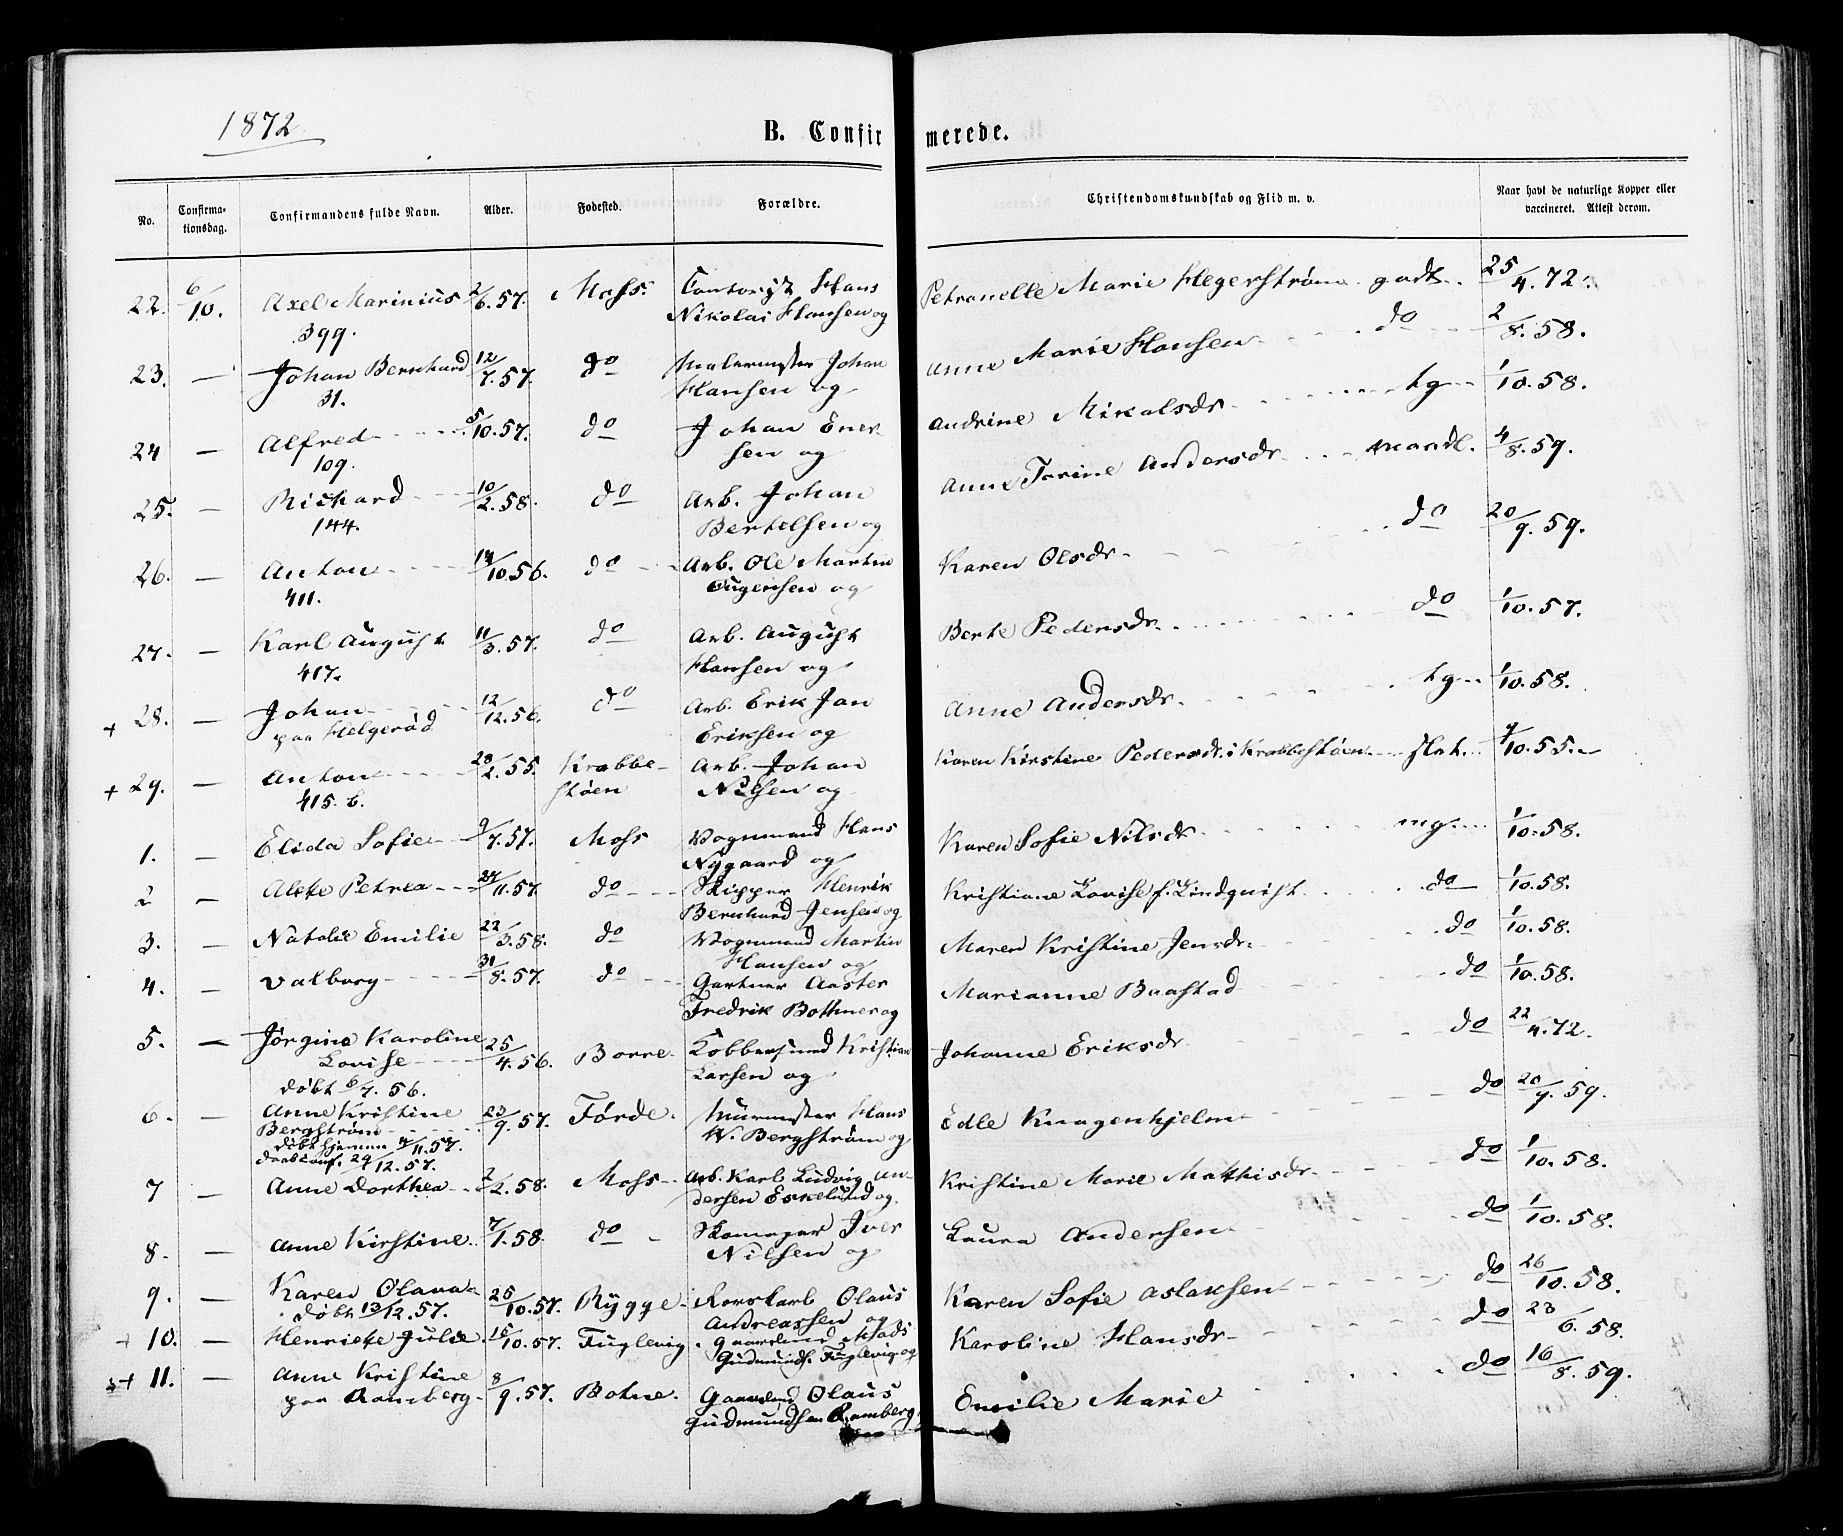 1872
B. Confirmerede.
No.
Confirma-
tionsdag.
Confirmandens fulde Navn.
Alder.
Fødested.
Forældre.
Christendomskundskab og Flid m. v.
Naar havt de naturlige Kopper eller
vaccineret. Attest derom.
22. 6/10. Axel Marinius 2/6.57. Moss. Contorist Hans Petronelle Marie Hegerstrøm godt. 25/4.72.
399. Nikolai Hansen og
23. — Johan Bernhard 12/7.57. do Malermester Johan Anne Marie Hansen do 2/8.58.
31. Hansen og
24 — Alfred 5/10.57. do Johan Ener- Andrine Mikalsdr. tg 1/10.58.
109. sen og
25. — Richard 10/2.58. do Arb. Johan Anne Torine Andersdr. maadl. 4/8.59.
144. Bertelsen og
26. — Anton 14/10.56. do Arb. Ole Martin Karen Olsdr. do 20/9.59.
411. og
27. — Karl August 11/3.57. do Arb. August Berte Pedersdr. do 1/10.57.
417. Hansen og
+ 28. — Johan 12/12.56. do Arb. Erik Jan Anne Andersdr. tg 1/10.58.
paa Helgerød Eriksen og
+ 29. — Anton 28/2.55. Krabbe- Arb. Johan Karen Kirstine Pedersdr. i Krabbestøen slet. 4/10.55.
415. b. støen Nilsen og
1. — Elida Sofie 9/7.57. Moss Vognmand Hans Karen Sofie Nilsdr. mg. 1/10.58.
Nygaard og
2 — Alette Petrea 27/11.57. do Skipper Henrik Kristiane Lovise f. Lindquist. do 1/10.58.
Bernhard Jensen og
3. — Natalie Emilie 22/3.58. do Vognmand Martin Maren Kristine Jensdr. do 1/10.58.
Hansen og
4. — Valborg 31/8.57. do Gartner Marianne Baastad do 1/10.58.
Fredrik Bothner og
5. — Jørgine Karoline 25/4.56. Borre. Kobbersmed Kristian Johanne Eriksdr do 22/4.72.
Lovise Larsen og
døbt 6/7.56.
6. — Anne Kristine 23/9.57. Førde. Murmester Hans Edle Knagenhjelm do 20/9.59.
Bergstrøm W. Bergstrøm og
døbt hjemme 4/11.57.
daabconf. 29/12.57.
7 — Anne Dorthea 2/2.58. Moss Arb. Karl Ludvig An- Kristine Marie Mathisdr. do 1/10.58.
dersen Eskelund og
8. — Anne Kirstine. 7/1.58. do Skomager Iver Laura Andersen do 1/10.58.
Nilsen og
9. — Karen Olava 25/10.57. Rygge. Olaus Karen Sofie Aslaksen do 26/10.58.
døbt 13/12.57. Andreassen og
+ 10. — Henriette Julie. 15/10.57. Fuglevig. Gaardmd Mads Karoline Hansdr. do 23/6.58.
Gudmunds. Fuglevig og
+ 11. — Anne Kristine 8/9.57. Botne. Gaardmd Olaus Emilie Marie do 16/8.59.
paa Ramberg Gudmundsen Ramberg